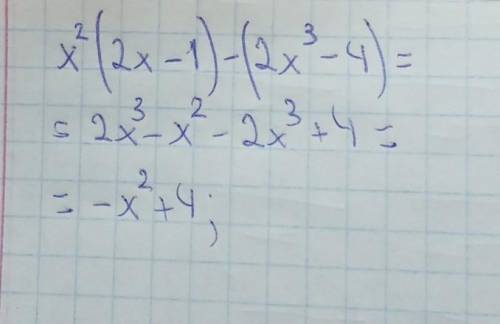 x²(2x-1)-(2x³-4)=
= 2x³-x²-2x³+4=
= -x²+4;